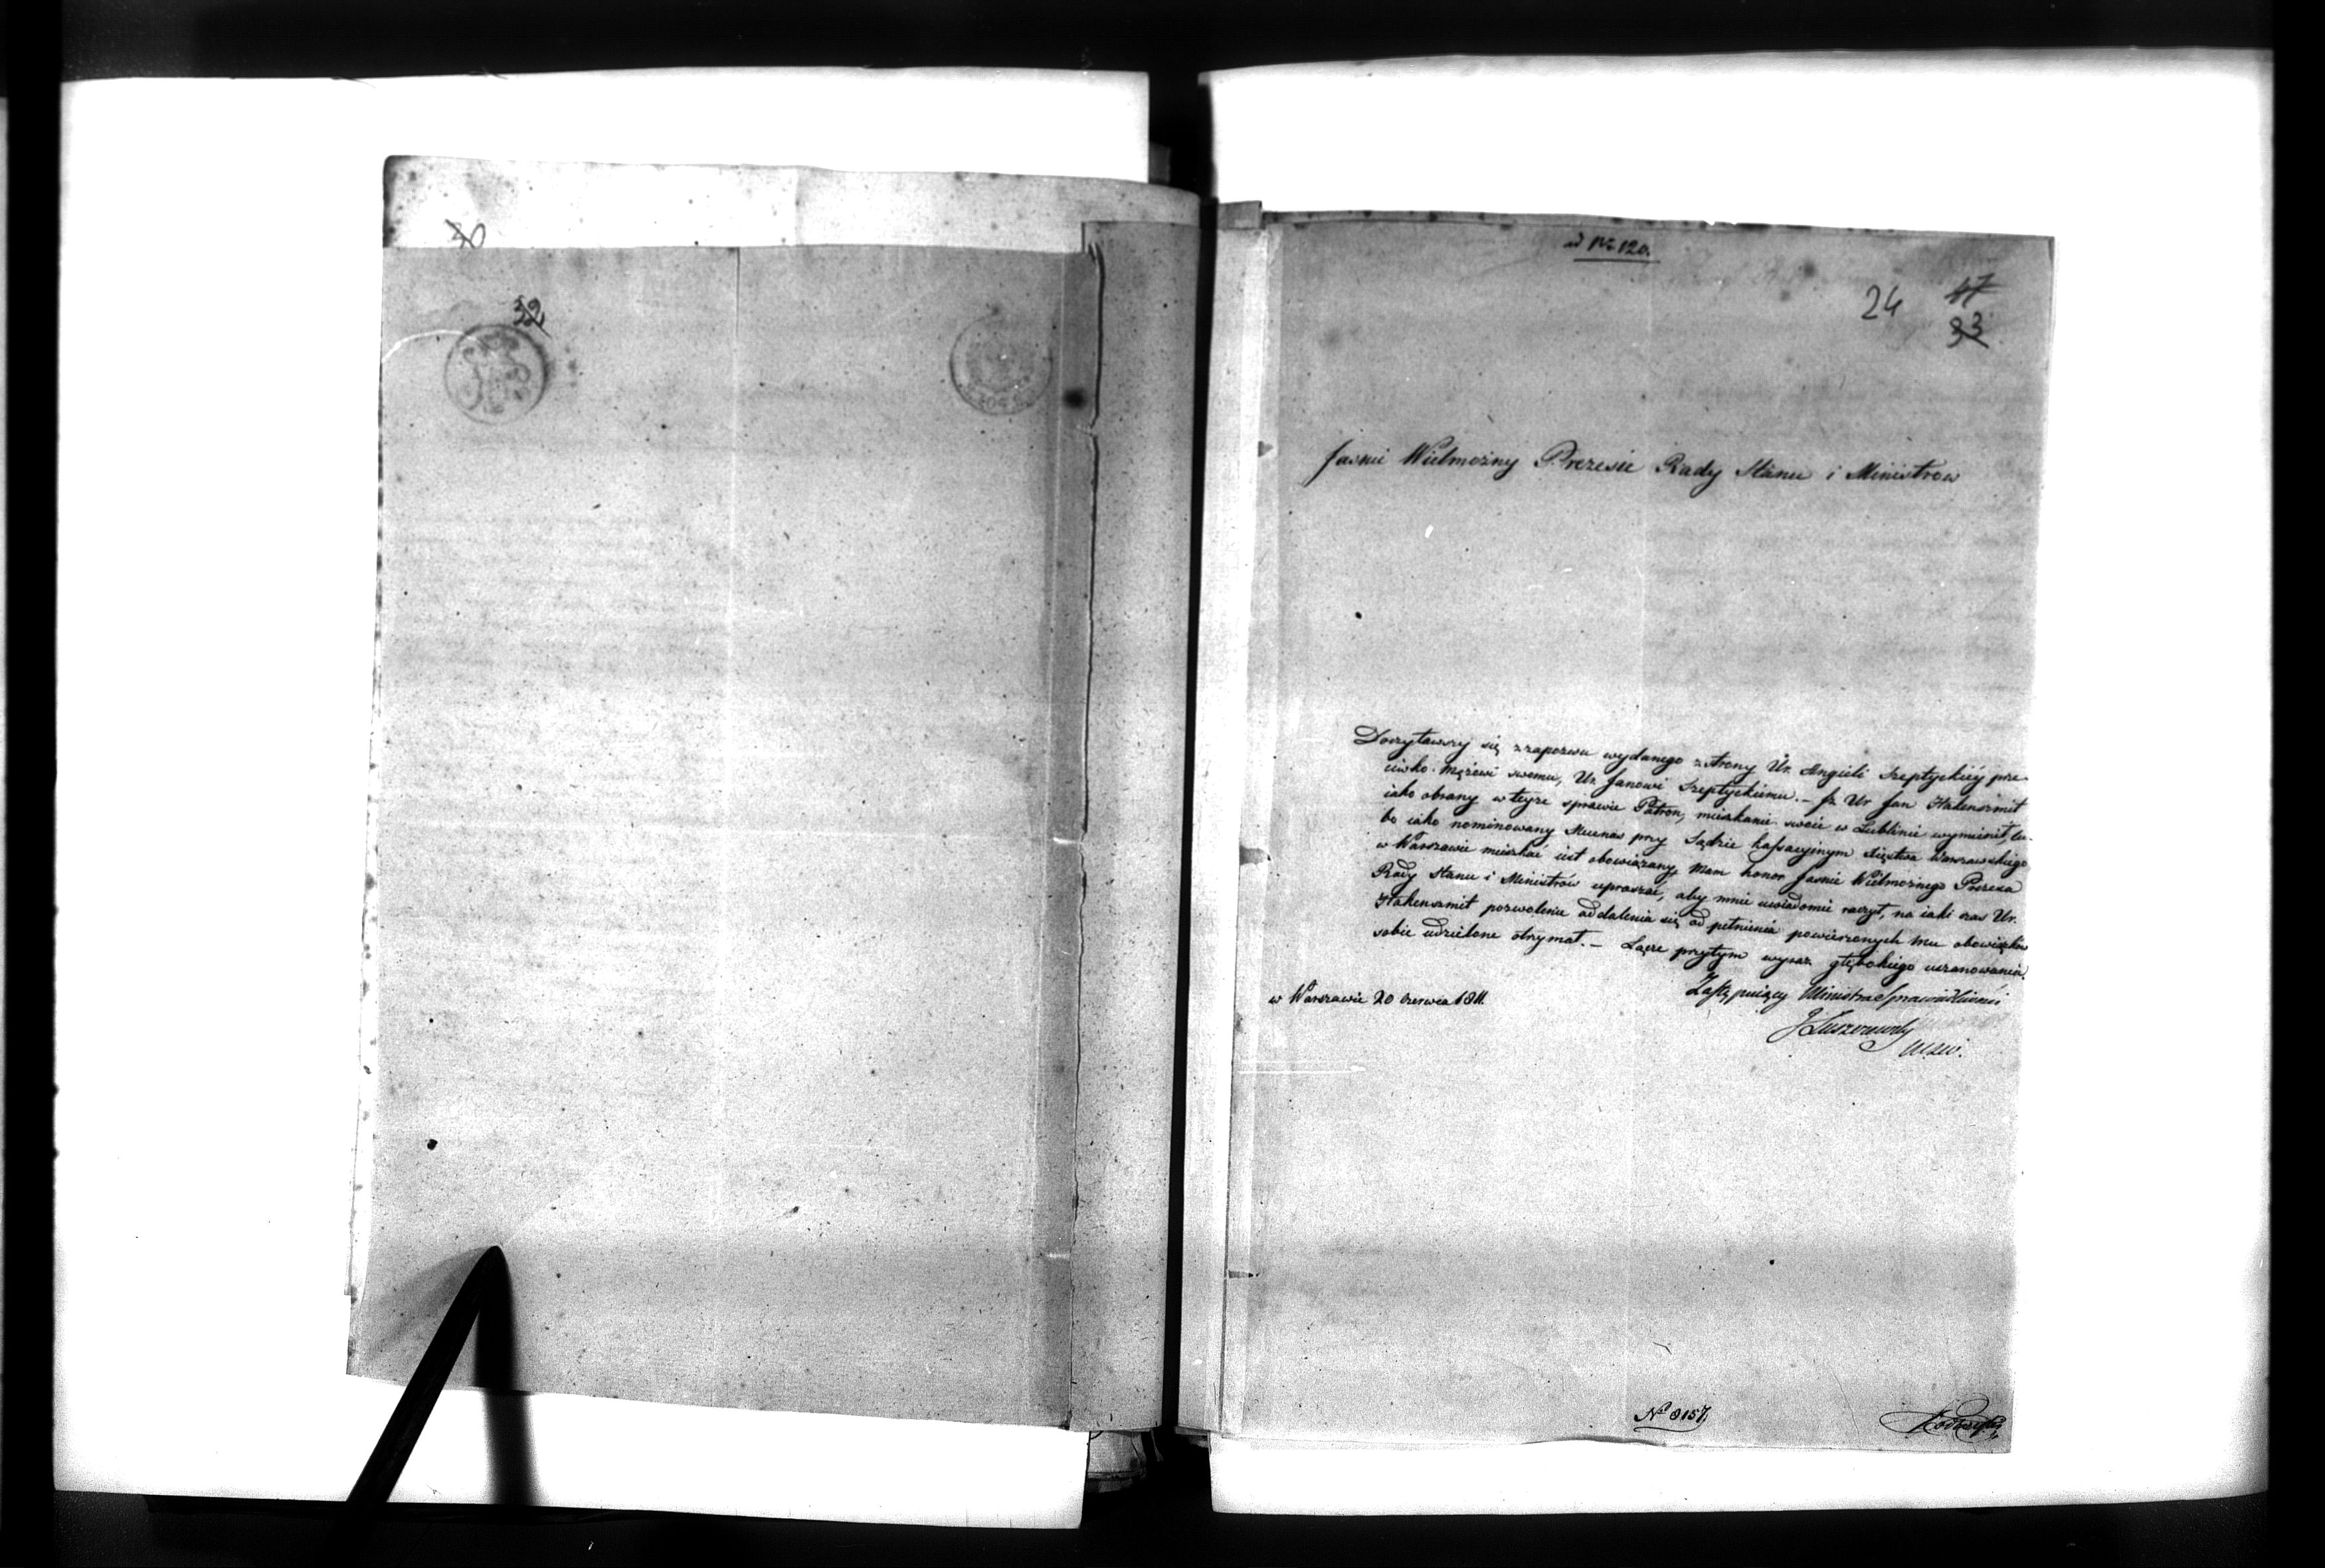 30
32
ad Nro 120.
24 47
33
Jasnie Wielmożny Prezesie Rady Stanu i Ministrow
Doczytawszy się z zapozwu wydanego z strony Ur. Angieli Szeptyckiéy prze-
ciwko Mężowi swemu, Ur. Janowi Szeptyckiemu. – Jż Ur Jan Hakenszmit
iako obrany w teyże sprawie Patron, mieszkanie swoie w Lublinie wymienił,
bo iako nominowany Mecenas przy Sądzie kassacyinym Xięstwa Warszawskiego
w Warszawie mieszkać iest obowiązany, Mam honor Jasnie Wielmożnego Prezesa
Rady Stanu i Ministrów upraszać, aby mnie uwiadomić raczył, na iaki czas Ur.
Hakenszmit pozwolenie oddalenia się od pełnienia powierzonych mu obowiązków
sobie udzielone otrzymał. – Łączę przytym wyraz głębokiego uszanowania.
w Warszawie 20 czerwca 1811.
Zastępuiący Ministra Sprawiedliwości
J Łuszczewski
No 8157,